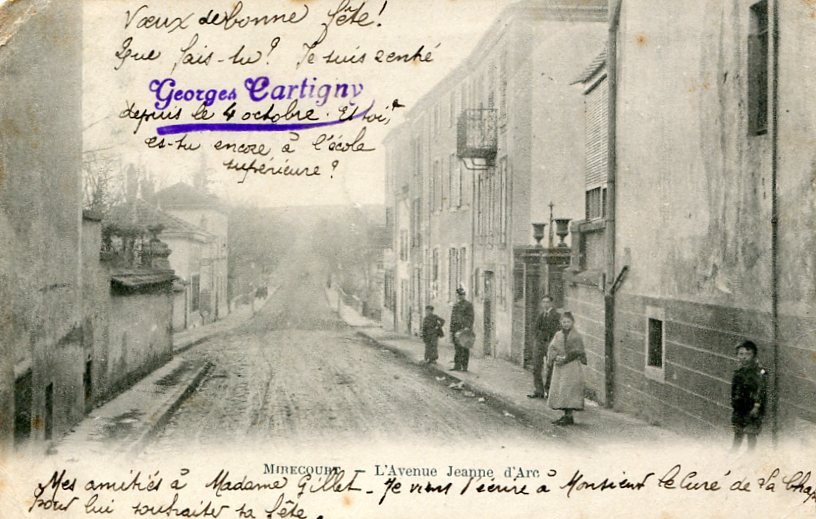 Vœux de bonne fête!
Que fais-tu? Je suis rentré
Georges Cartigny
depuis le 4 octobre. Et toi,
es-tu encore à l'école
supérieure?
MIRECOURT - L'Avenue Jeanne d'Arc
Mes amitiés à Madame Gillet - Je viens d'écrire à Monsieur le Curé de la Chap
pour lui souhaiter sa fête.